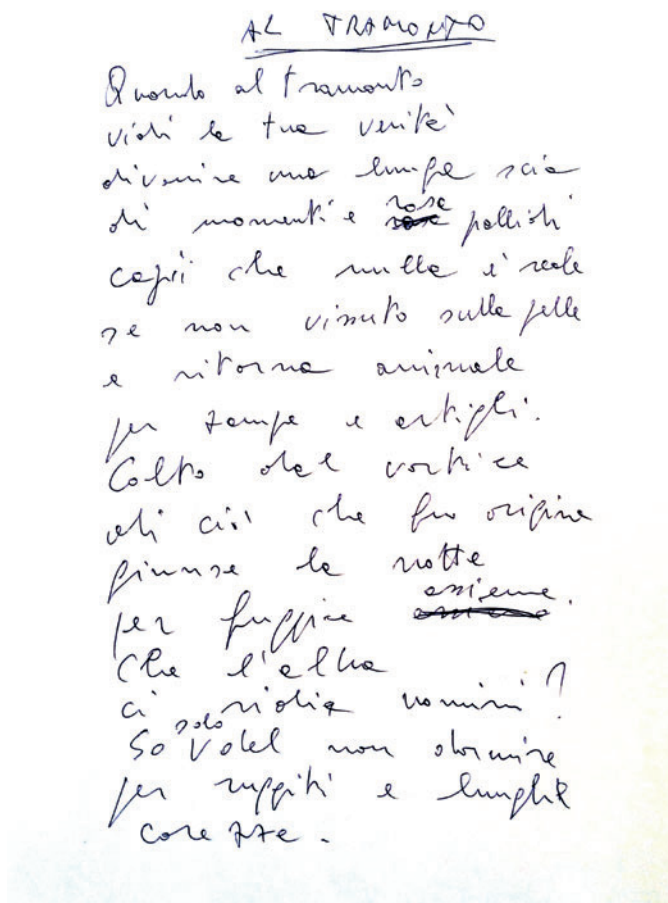 AL TRAMONTO
Quando al tramonto
vidi la tua verità
divenire una lunga scia
di momenti e rose pallidi
capii che nulla è reale
se non vissuto sulla pelle
e ritorna animale
per zampe e artigli.
Colto dal vortice
di ciò che fu origine
giunse la notte
per fuggire assieme.
Che l'alba
ci ridia uomini?
So solo del non dormire
per ruggiti e lunghe
carezze.